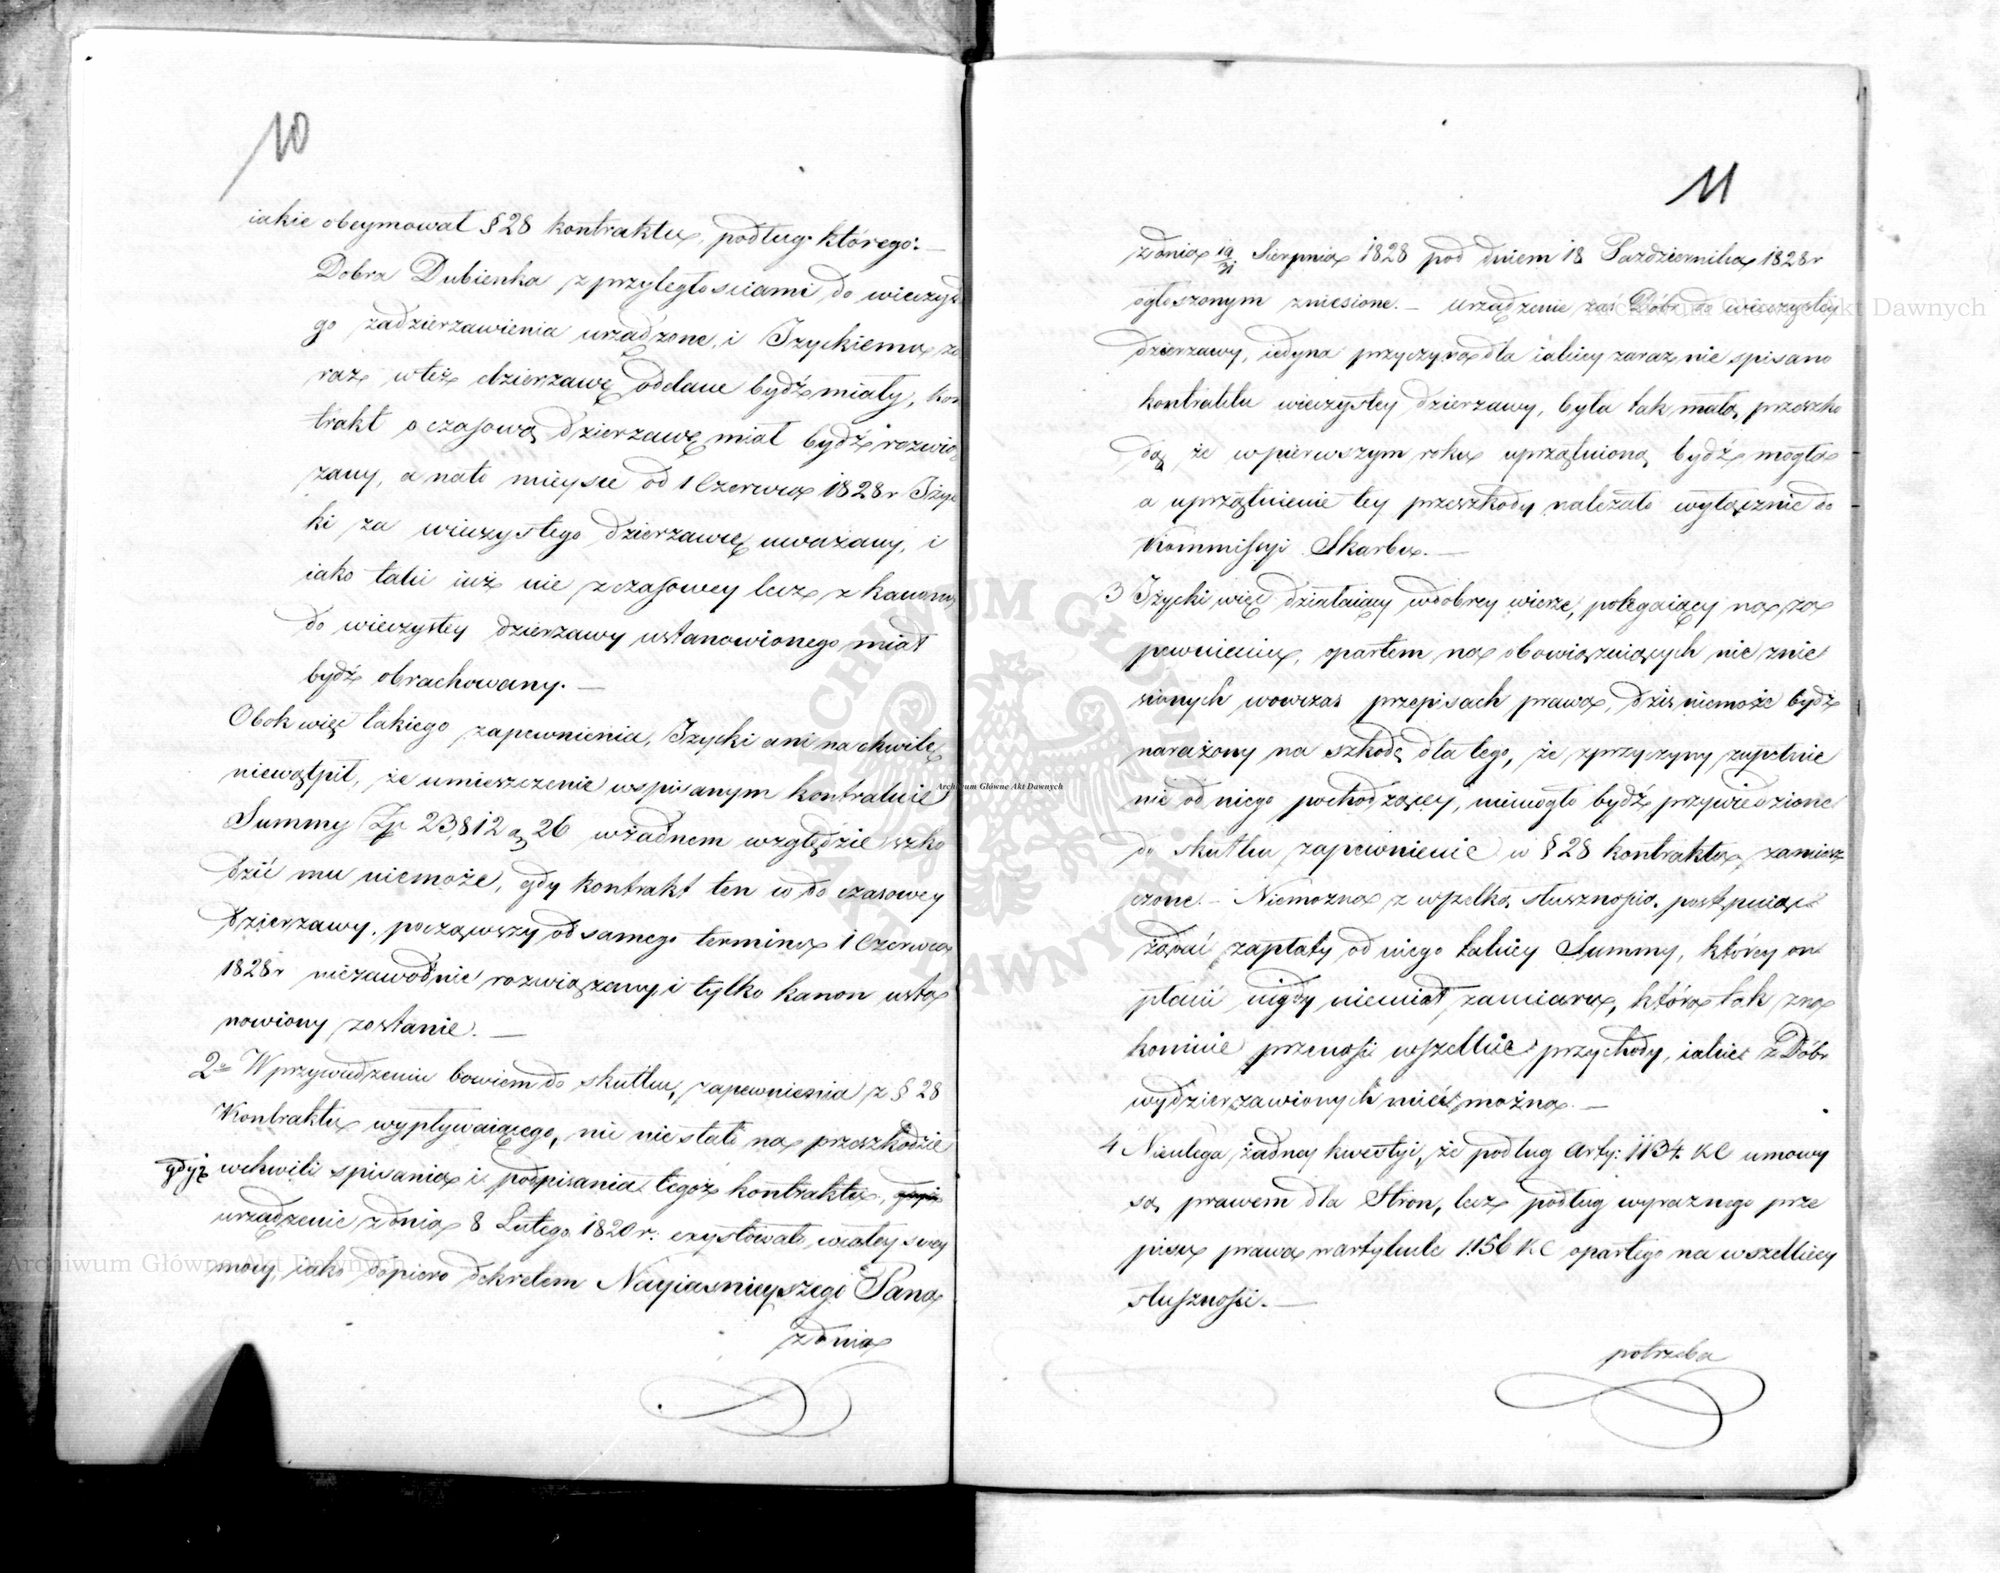 10
iakie obeymował § 28 kontraktu, podług którego: —
Dobra Dubienka z przyległościami do wieczyste
go zadzierzawienia urządzone, i Iżyckiemu za
raz w też dzierzawę oddane bydź miały, kon
trakt o czasową dzierzawę miał bydź rozwią
zany, a nato mieysce od 1 Czerwca 1828 r Iżyc
ki za wieczystego dzierzawcę uważany, i
iako taki iuż nie z czasowey lecz z kanonu
do wieczystey dzierzawy ustanowionego miał
bydź obrachowany. —
Obok więc takiego zapewnienia, Iżycki ani na chwilę
niewątpił, że umieszczenie w spisanym kontrakcie
Summy Zp 23,812 g 26 w żadnem względzie szko
dzić mu niemoże, gdy kontrakt ten co do czasowey
dzierzawy, począwszy od samego terminu 1 Czerwca
1828 r niezawodnie rozwiązany i tylko kanon usta
nowiony zostanie. —
2e W przywiedzeniu bowiem do skutku, zapewnienia z § 28
Kontraktu wypływaiącego, nic nie stało na przeszkodzie
gdyż w chwili spisania i podpisania tegoż kontraktu,
urządzenie z dnia 8 Lutego 1820 r: exystowało w całey swey
mocy, iako dopiero dekretem Nayiaśnieyszego Pana
z dnia
11
z dnia 19/31 Sierpnia 1828 pod dniem 18 Pazdziernika 1828 r
ogłoszonym zniesione. — urządzenie zaś Dóbr do wieczystey
dzierzawy, iedyna przyczyna dla iakiey zaraz nie spisano
kontraktu wieczystey dzierzawy, była tak małą przeszko
dą że w pierwszym roku uprzątnioną bydź mogła
a uprzątnienie tey przeszkody należało wyłącznie do
Kommissyi Skarbu. —
3 Iżycki więc działaiący w dobrey wierze, polegaiący na za
pewnieniu, opartem na obowiązuiących nie znie
sionych wowczas przepisach prawa, dziś niemoże bydź
narażony na szkodę dla tego, że z przyczyny zupełnie
nie od niego pochodzącey, niemogło bydź przywiedzione
do skutku zapewnienie w § 28 kontraktu zamiesz
czone. — Niemożna z wszelką słusznością postępuiąc
żądać zapłaty od niego takiey Summy, którey on
płacić nigdy niemiał zamiaru, która tak zna
komicie przenosi wszelkie przychody, iakie z Dóbr
wydzierzawionych mieć można. —
4 Nieulega żadney kwestyi, że podług Arty: 1134 KC umowy
są prawem dla Stron, lecz podług wyraznego prze
pisu prawa w artykule 1156 KC opartego na wszelkiey
słuszności. —
potrzeba
Archiwum Główne Akt Dawnych
Archiwum Główne Akt Dawnych
Archiwum Główne Akt Dawnych
ARCHIWUM GŁÓWNE AKT DAWNYCH